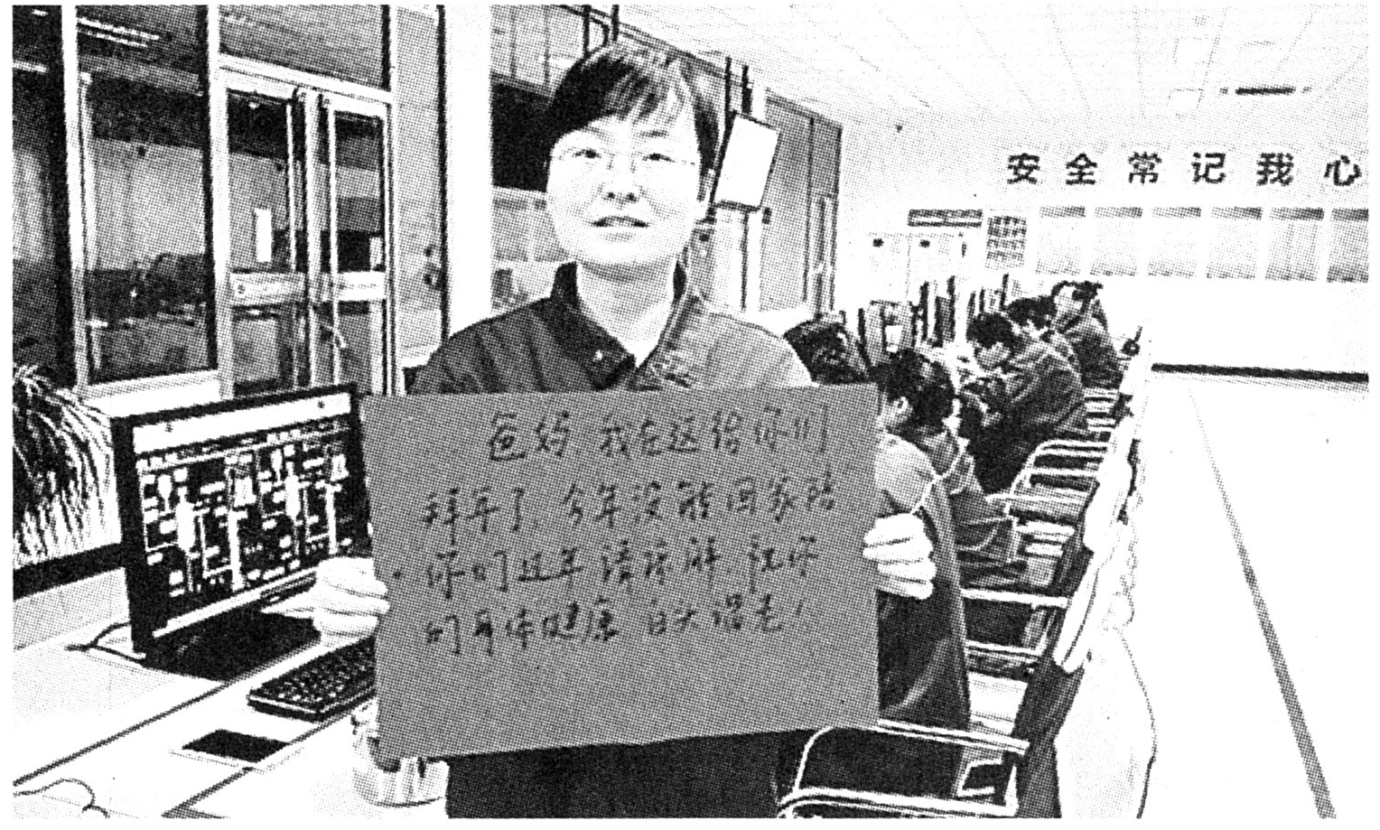 安全常记我心
爸妈 我在这给你们
拜年了 今年没能回家陪
你们过年 请谅解 祝你
们身体健康 白头偕老！